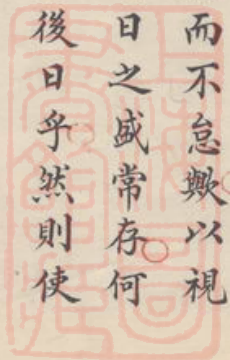 而不怠歟以視
日之盛常存何
後日乎然則使